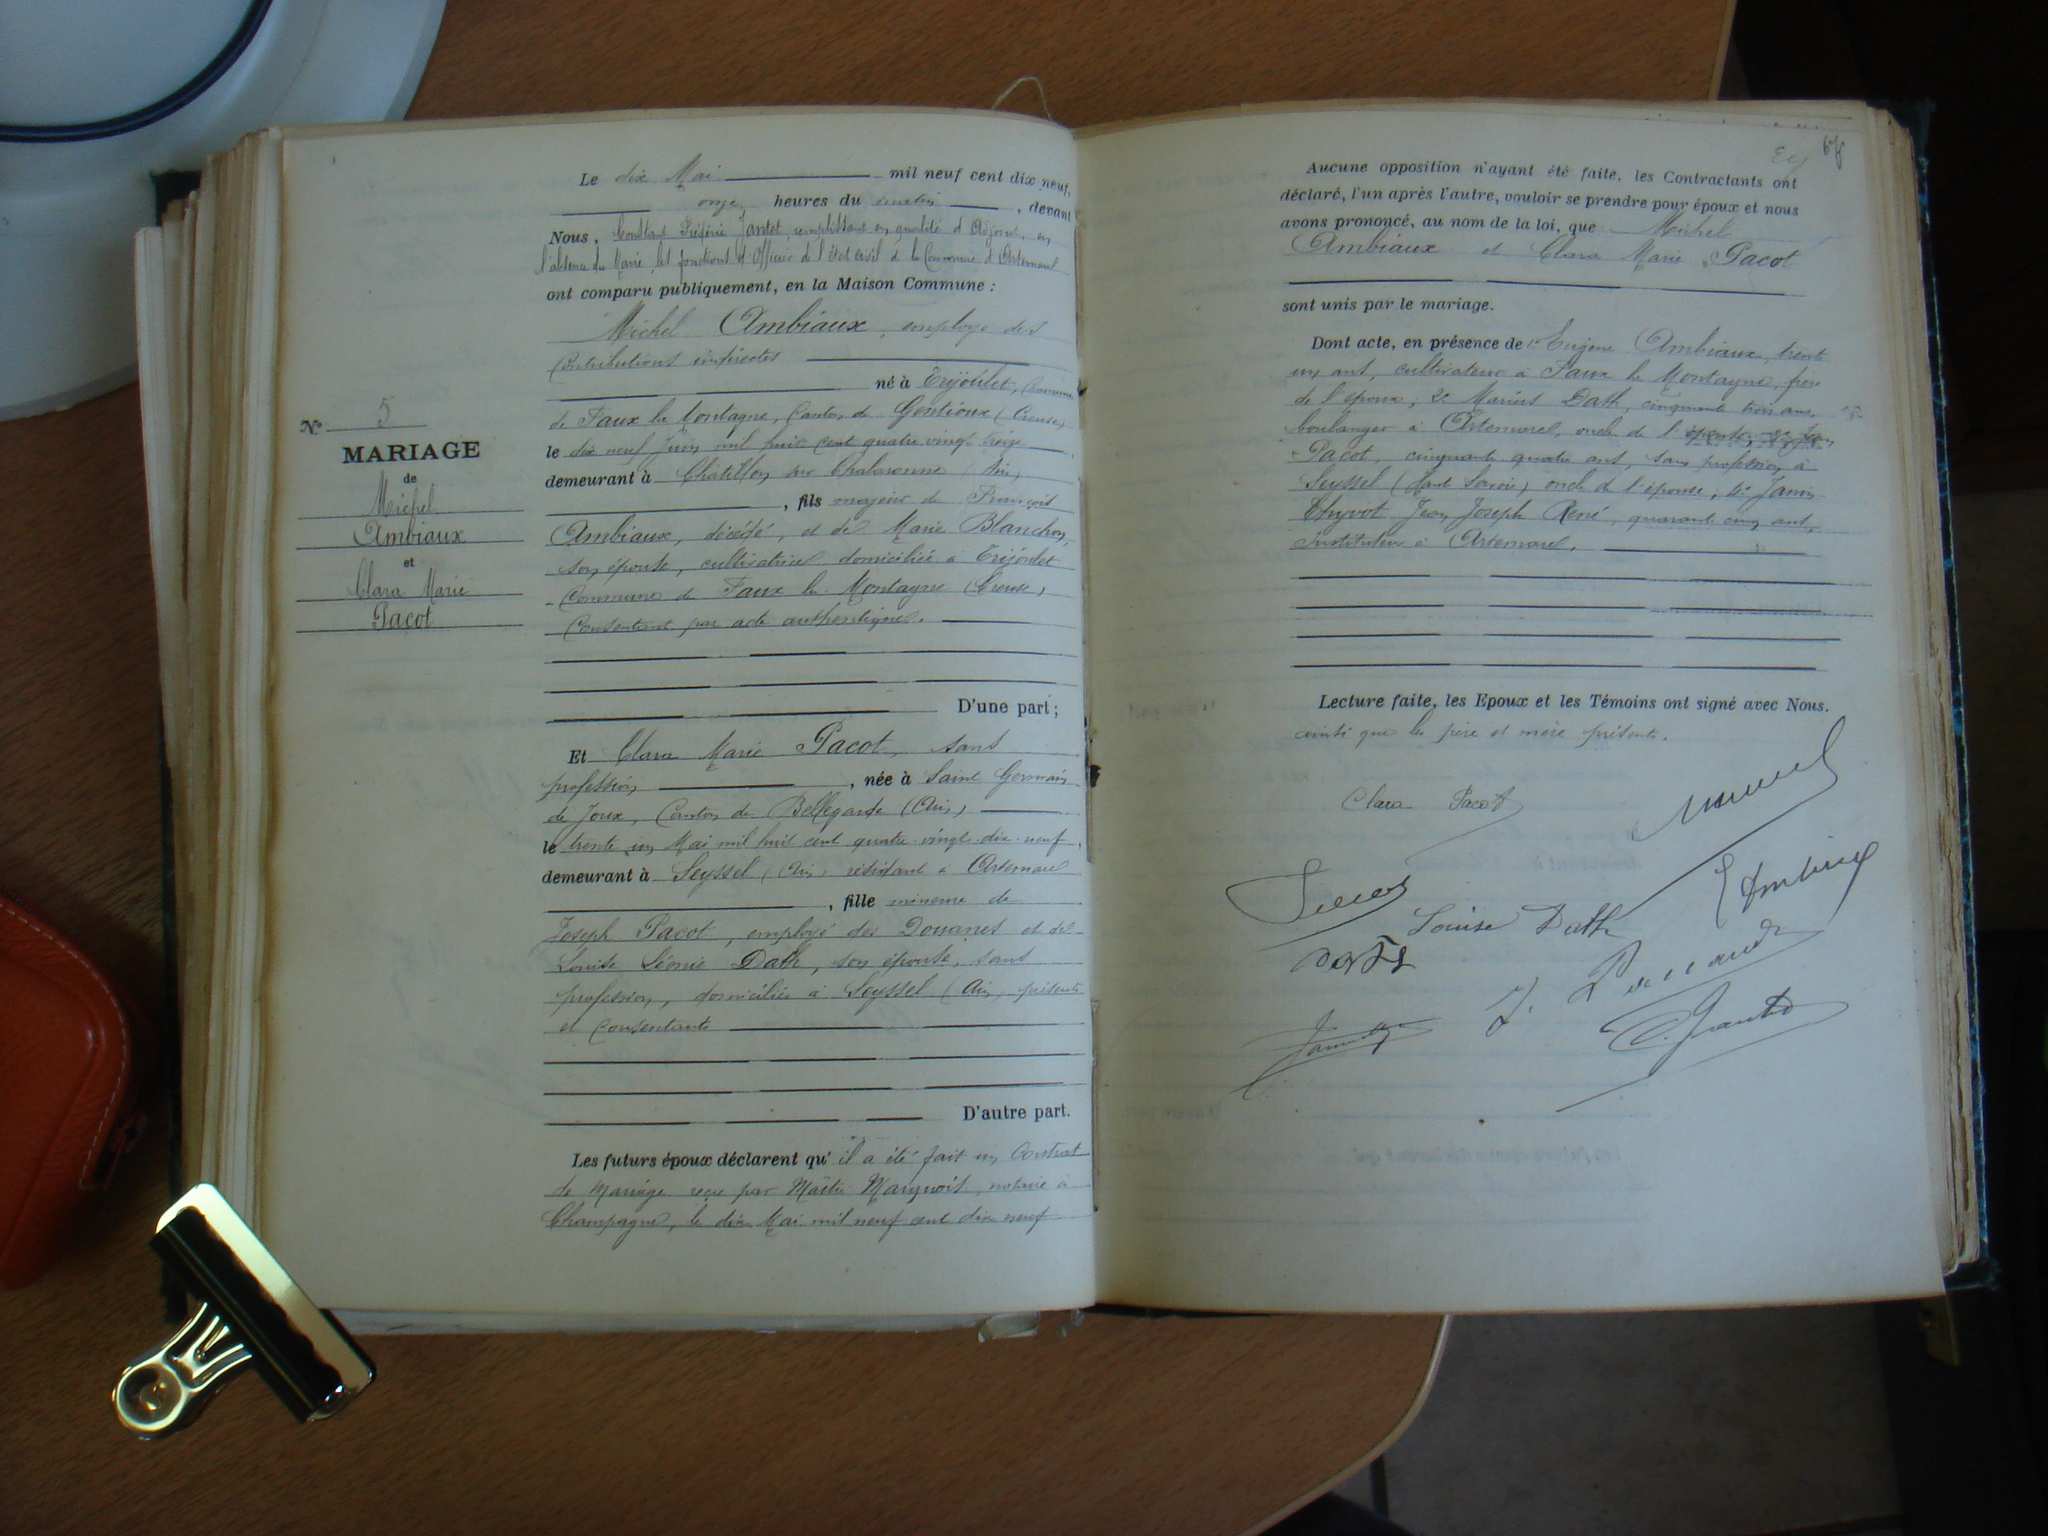 N° 5
MARIAGE
de
Michel
Ambiaux
et
Clara Marie
Pacot
Le dix Mai mil neuf cent dix neuf,
onze heures du matin, devant
Nous, Constant Frédéric Jantet, remplissant en qualité d'Adjoint, en
l'absence du Maire, les fonctions d'Officier de l'état civil de la Commune d'Artemare
ont comparu publiquement, en la Maison Commune :
Michel Ambiaux, employé des
Contributions indirectes
né à Trijoulet, Commune
de Faux la Montagne, Canton de Gentioux (Creuse)
le dix neuf Juin mil huit cent quatre vingt treize
demeurant à Chatillon sur Chalaronne (Ain)
, fils majeur de François
Ambiaux, décédé, et de Marie Blanchon,
son épouse, cultivatrice, domiciliée à Trijoulet
Commune de Faux la Montagne (Creuse)
Consentant par acte authentique.
D'une part ;
Et Clara Marie Pacot, sans
profession, née à Saint Germain
de Joux, Canton de Bellegarde (Ain)
le trente un Mai mil huit cent quatre vingt dix neuf,
demeurant à Seyssel (Ain) résidant à Artemare
, fille mineure de
Joseph Pacot, employé des Douanes et de
Louise Léonie Dath, son épouse, sans
profession, domiciliés à Seyssel (Ain, présents
et consentants
D'autre part.
Les futurs époux déclarent qu'il a été fait un Contrat
de Mariage reçu par Maître Marquois, notaire à
Champagne, le dix Mai mil neuf cent dix neuf
67
Aucune opposition n'ayant été faite, les Contractants ont
déclaré, l'un après l'autre, vouloir se prendre pour époux et nous
avons prononcé, au nom de la loi, que Michel
Ambiaux et Clara Marie Pacot
sont unis par le mariage.
Dont acte, en présence de 1° Eugène Ambiaux, trente
un ans, cultivateur à Faux la Montagne, frère
de l'époux, 2° Marius Dath, cinquante trois ans,
boulanger à Artemare, oncle de l'épouse, 3°
Pacot, cinquante quatre ans, sans profession à
Seyssel (Haute Savoie) oncle de l'épouse, 4° Janin
Thyvot Jean Joseph René, quarante cinq ans,
instituteur à Artemare.
Lecture faite, les Epoux et les Témoins ont signé avec Nous.
ainsi que les père et mère présents.
Clara Pacot
Louise Dath
Dath
C. Jantet